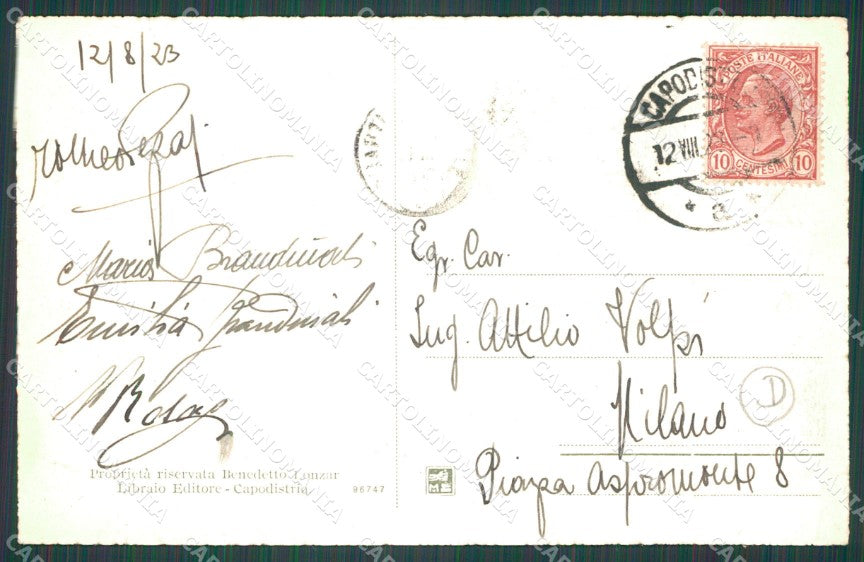 12/8/23
Maria Brandinali
Emilia Grandinali
Proprietà riservata Benedetto Lonzar
Libraio Editore - Capodistria
96747
Egr. Cav.
Ing. Attilio Volpi
Milano
Piazza Aspromonte 8
D
CAPODIS
12 VIII 23
POSTE ITALIANE
10 CENTESIMI 10
CARTOLINOMANIA